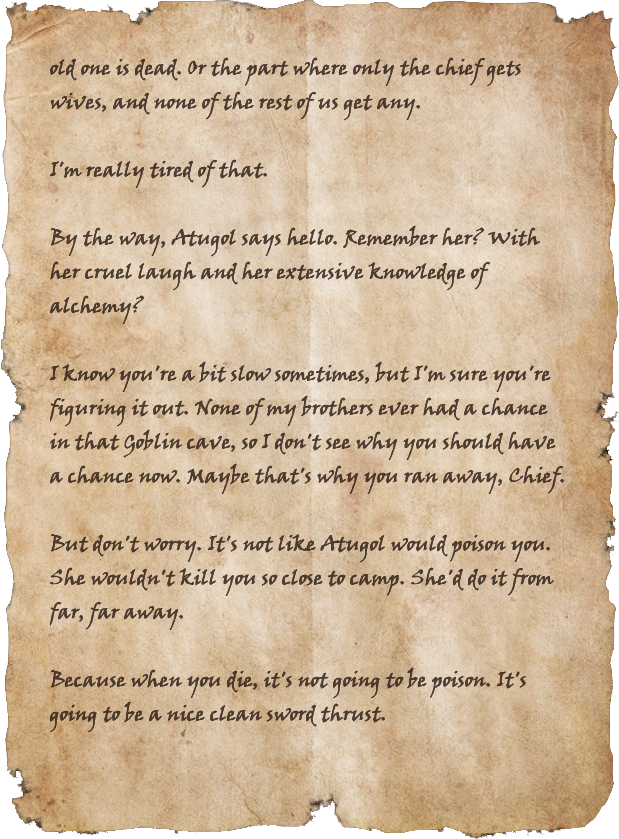 old one is dead. Or the part where only the chief gets
wives, and none of the rest of us get any.
I'm really tired of that.
By the way, Atugol says hello. Remember her? With
her cruel laugh and her extensive knowledge of
alchemy?
I know you're a bit slow sometimes, but I'm sure you're
figuring it out. None of my brothers ever had a chance
in that Goblin cave, so I don't see why you should have
a chance now. Maybe that's why you ran away, Chief.
But don't worry. It's not like Atugol would poison you.
She wouldn't kill you so close to camp. She'd do it from
far, far away.
Because when you die, it's not going to be poison. It's
going to be a nice clean sword thrust.